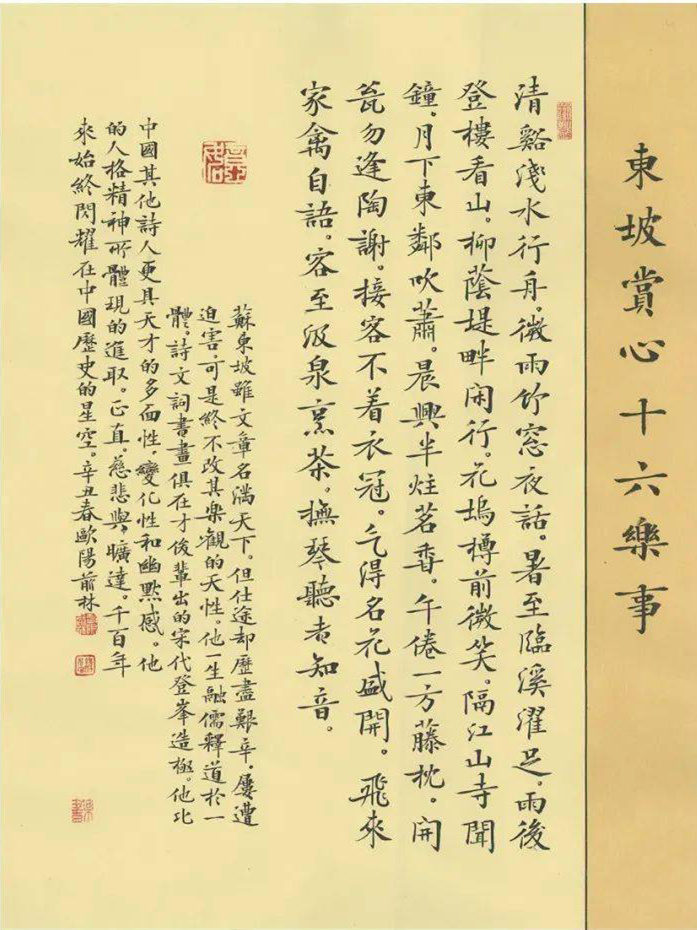 東坡賞心十六樂事
清谿淺水行舟。微雨竹窓夜話。暑至臨溪濯足。雨後
登樓看山。柳蔭堤畔閑行。花塢樽前微笑。隔江山寺聞
鐘。月下東鄰吹蕭。晨興半炷茗香。午倦一方藤枕。開
瓮勿逢陶謝。接客不着衣冠。乞得名花盛開。飛來
家禽自語。客至汲泉烹茶。撫琴聽者知音。
蘇東坡雖文章名滿天下。但仕途却歷盡艱辛。屢遭
迫害。可是終不改其樂觀的天性。他一生融儒釋道於一
體。詩文詞書畫俱在才後輩出的宋代登峯造極。他比
中國其他詩人更具天才的多面性,變化性和幽默感。他
的人格精神所體現的進取。正直。慈悲與曠達。千百年
來始終閃耀在中國歷史的星空。辛丑春歐陽林